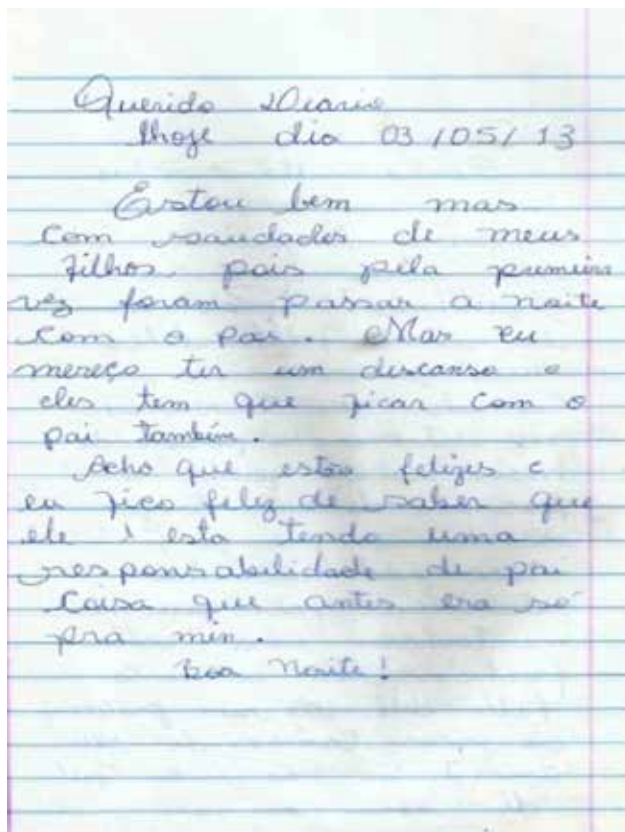 Querido Diario
hoje dia 03/05/13
Estou bem mas
com saudades de meus
filhos pois pela primeira
vez foram passar a noite
com o pai. Mas eu
mereço ter um descanso e
eles tem que ficar com o
pai também.
Acho que estão felizes e
eu fico feliz de saber que
ele esta tendo uma
responsabilidade de pai
coisa que antes era só
pra min.
Boa Noite!